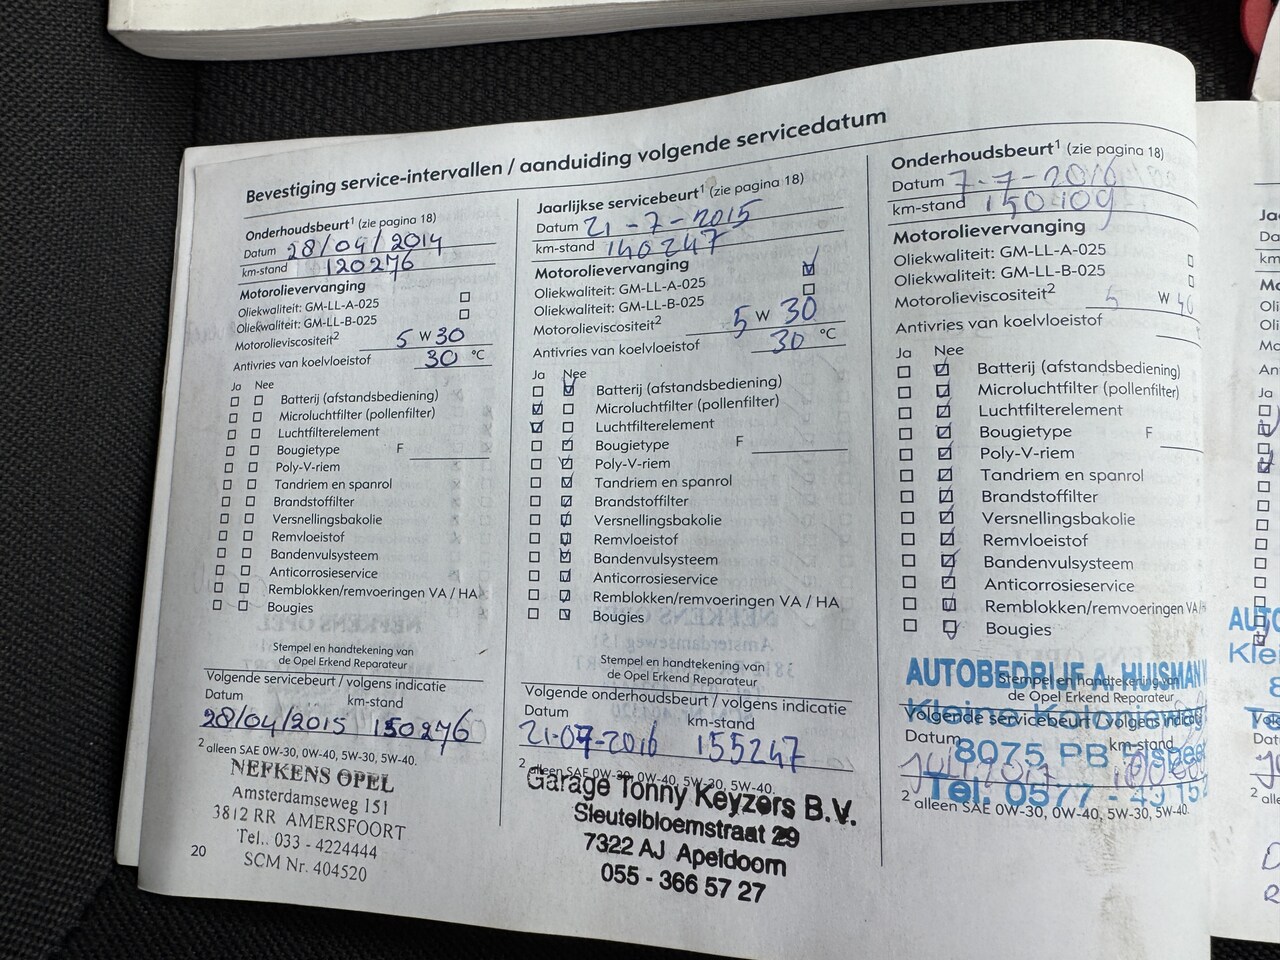 Bevestiging service-intervallen / aanduiding volgende servicedatum
Onderhoudsbeurt¹ (zie pagina 18)
Datum 28/04/2014
km-stand 120276
Motorolievervanging
Oliekwaliteit: GM-LL-A-025
Oliekwaliteit: GM-LL-B-025
Motorolieviscositeit² 5 W 30
Antivries van koelvloeistof 30 °C
Ja Nee
Batterij (afstandsbediening)
Microluchtfilter (pollenfilter)
Luchtfilterelement
Bougietype F
Poly-V-riem
Tandriem en spanrol
Brandstoffilter
Versnellingsbakolie
Remvloeistof
Bandenvulsysteem
Anticorrosieservice
Remblokken/remvoeringen VA / HA
Bougies
Stempel en handtekening van
de Opel Erkend Reparateur
Volgende servicebeurt / volgens indicatie
Datum km-stand
28/04/2015 150276
² alleen SAE 0W-30, 0W-40, 5W-30, 5W-40.
NEFKENS OPEL
Amsterdamseweg 151
3812 RR AMERSFOORT
Tel.. 033 - 4224444
SCM Nr. 404520
20
Jaarlijkse servicebeurt¹ (zie pagina 18)
Datum 21-7-2015
km-stand 140247
Motorolievervanging
Oliekwaliteit: GM-LL-A-025
Oliekwaliteit: GM-LL-B-025
Motorolieviscositeit² 5 W 30
Antivries van koelvloeistof 30 °C
Ja Nee
Batterij (afstandsbediening)
Microluchtfilter (pollenfilter)
Luchtfilterelement
Bougietype F
Poly-V-riem
Tandriem en spanrol
Brandstoffilter
Versnellingsbakolie
Remvloeistof
Bandenvulsysteem
Anticorrosieservice
Remblokken/remvoeringen VA / HA
Bougies
Stempel en handtekening van
de Opel Erkend Reparateur
Volgende onderhoudsbeurt / volgens indicatie
Datum km-stand
21-07-2016 155247
² alleen SAE 0W-30, 0W-40, 5W-30, 5W-40.
Garage Tonny Keyzers B.V.
Sleutelbloemstraat 29
7322 AJ Apeldoorn
055 - 366 57 27
Onderhoudsbeurt¹ (zie pagina 18)
Datum 7-7-2016
km-stand 150109
Motorolievervanging
Oliekwaliteit: GM-LL-A-025
Oliekwaliteit: GM-LL-B-025
Motorolieviscositeit² 5 W 40
Antivries van koelvloeistof
Ja Nee
Batterij (afstandsbediening)
Microluchtfilter (pollenfilter)
Luchtfilterelement
Bougietype F
Poly-V-riem
Tandriem en spanrol
Brandstoffilter
Versnellingsbakolie
Remvloeistof
Bandenvulsysteem
Anticorrosieservice
Remblokken/remvoeringen VA/
Bougies
AUTOBEDRIJF A. HUISMAN
Stempel en handtekening van
de Opel Erkend Reparateur
Kleine
Volgende servicebeurt / volgens
Datum km-stand
8075 PB
Tel. 0577 -
² alleen SAE 0W-30, 0W-40, 5W-30, 5W-40.